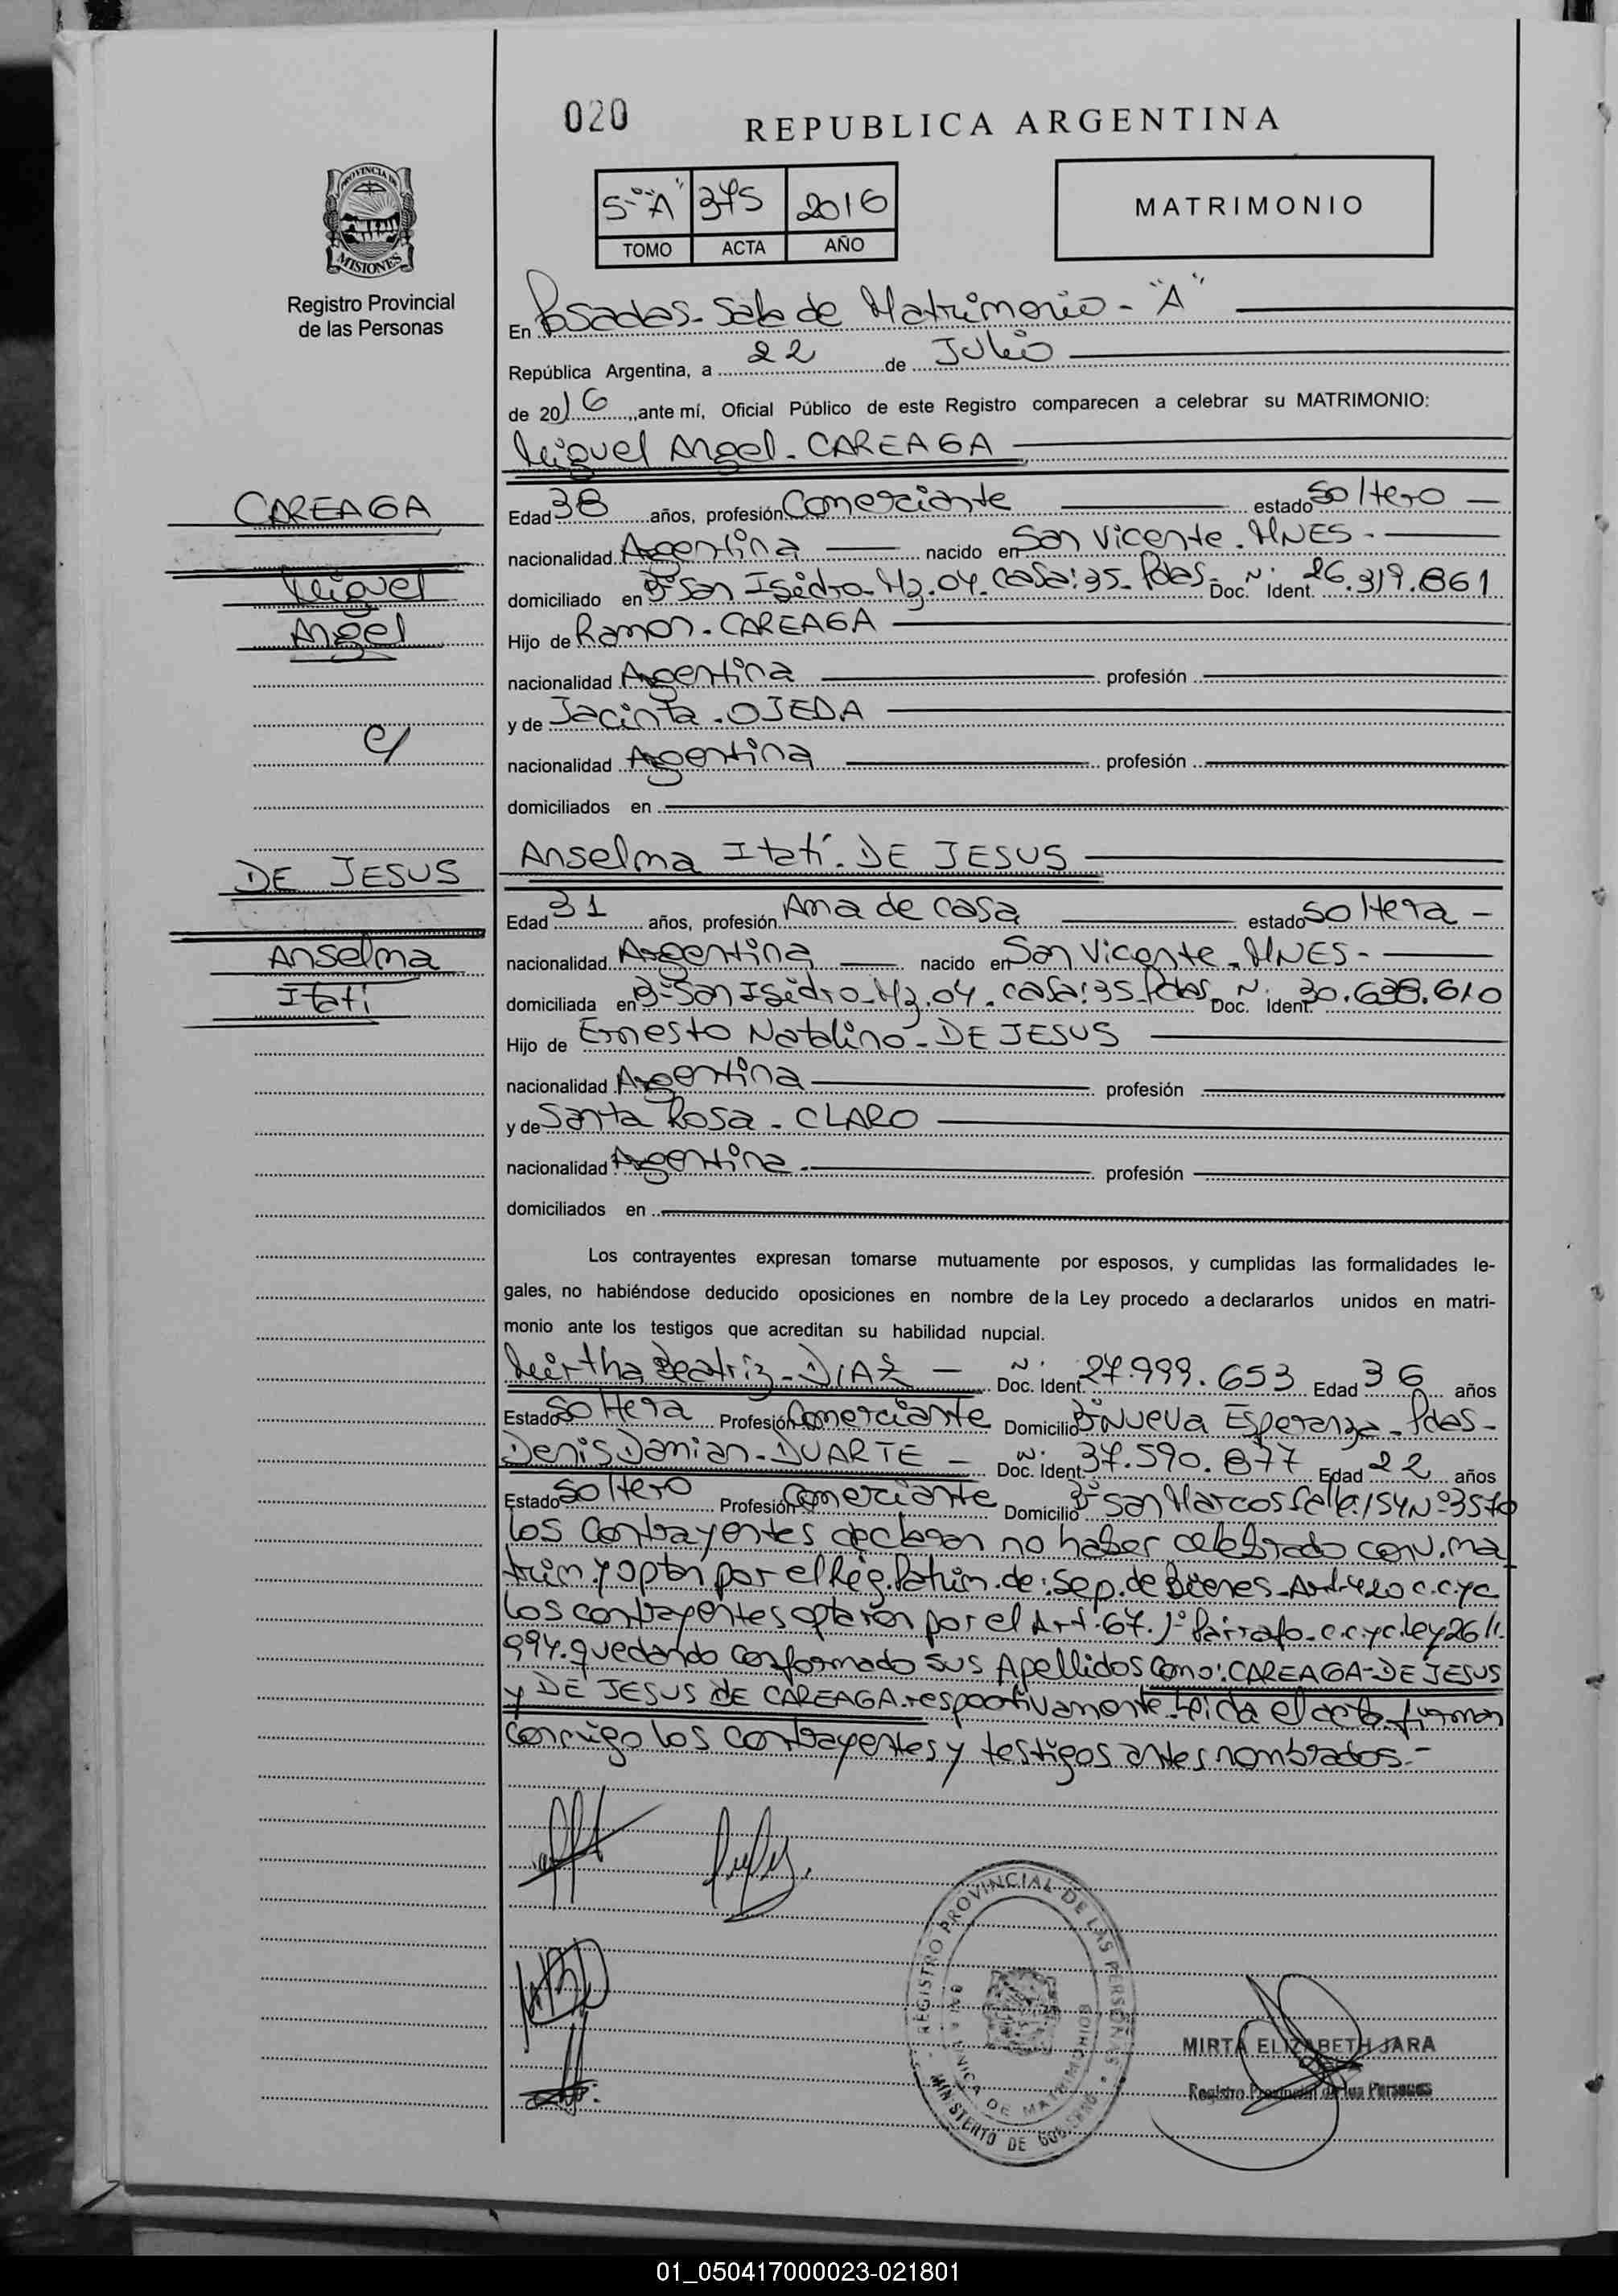 020
REPUBLICA ARGENTINA
PROVINCIA DE
MISIONES
Registro Provincial
de las Personas
5º "A" 375 2016
TOMO ACTA AÑO
MATRIMONIO
En Posadas - Sala de Matrimonio - "A"
República Argentina, a 22 de Julio
de 2016, ante mí, Oficial Público de este Registro comparecen a celebrar su MATRIMONIO:
Miguel Angel - CAREAGA
CAREAGA
Miguel
Angel
c/
DE JESUS
Anselma
Itatí
Edad 38 años, profesión Comerciante estado Soltero -
nacionalidad Argentina nacido en San Vicente. MNES -
domiciliado en Bº San Isidro - Mz. 04 - casa: 35 - Pdas - Doc. Nº Ident. 26.319.861
Hijo de Ramon - CAREAGA
nacionalidad Argentina profesión
y de Jacinta - OJEDA
nacionalidad Argentina profesión
domiciliados en
Anselma Itatí - DE JESUS
Edad 31 años, profesión Ama de casa estado Soltera -
nacionalidad Argentina nacido en San Vicente - MNES -
domiciliada en Bº San Isidro - Mz. 04 - casa: 35 - Pdas Doc. Nº Ident. 30.638.610
Hijo de Ernesto Natalino - DE JESUS
nacionalidad Argentina profesión
y de Santa Rosa - CLARO
nacionalidad Argentina - profesión
domiciliados en
Los contrayentes expresan tomarse mutuamente por esposos, y cumplidas las formalidades le-
gales, no habiéndose deducido oposiciones en nombre de la Ley procedo a declararlos unidos en matri-
monio ante los testigos que acreditan su habilidad nupcial.
Mirtha Beatriz - DIAZ - Nº Doc. Ident. 27.999.653 Edad 36 años
Estado Soltera Profesión Comerciante Domicilio Bº Nueva Esperanza - Pdas -
Denis Damian - DUARTE - Nº Doc. Ident. 37.590.877 Edad 22 años
Estado Soltero Profesión Comerciante Domicilio Bº San Marcos Calle 154 Nº 3570
Los contrayentes declaran no haber celebrado conv. ma
trim. y optan por el Rég. Patrim. de: Sep. de Bienes - Art. 420 c.c.yc
Los contrayentes optaron por el Art. 67. 1º Párrafo - c.c.yc. ley 26//.
994. quedando conformado sus Apellidos como: CAREAGA - DE JESUS
y DE JESUS de CAREAGA. respectivamente. Leida el acta firman
conmigo los contrayentes y testigos antes nombrados. -
REGISTRO PROVINCIAL DE LAS PERSONAS
UNICA DE MATRIMONIOS
MINISTERIO DE GOBIERNO
MIRTA ELIZABETH JARA
Registro Provincial de las Personas
01_050417000023-021801